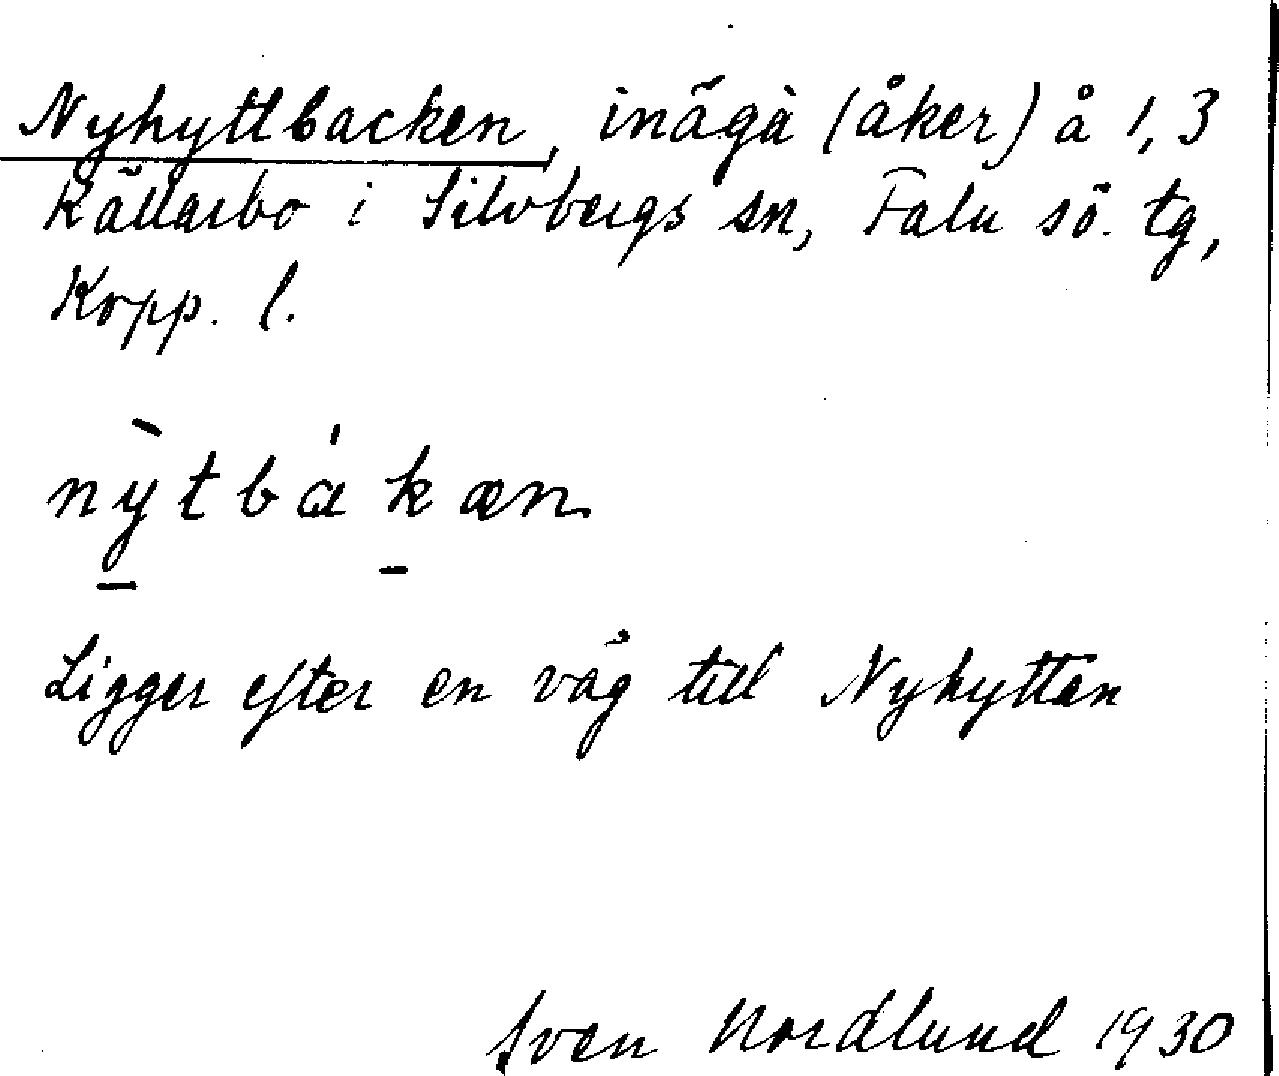 Nyhyttbacken, inägå (åker) å 1,3
Källarbo i Silvbergs sn, Falu sö. tg,
Kopp. l.
nỳtbákæn
Ligger efter en väg till Nyhyttan
Sven Nordlund 1930